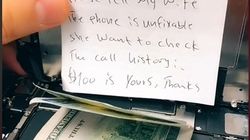 tell my wife
The phone is unfixable
She want to check
The call history.
$100 is yours, Thanks